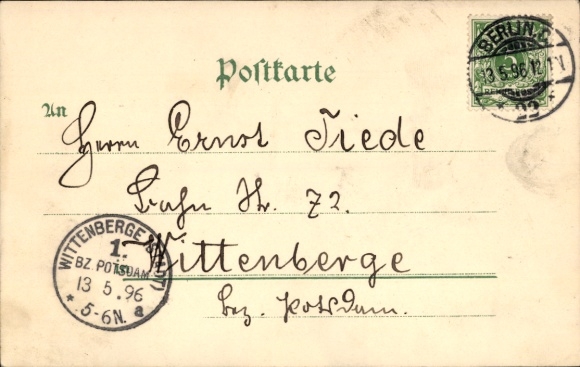 BERLIN.C.
13.5.96.12.1V
* 22 *
Postkarte
An
Herrn Ernst Tiede
Bahn Str. 72.
in Wittenberge
bez. Potsdam.
WITTENBERGE
1.
BZ. POTSDAM
13 5.96
* 5-6N. a